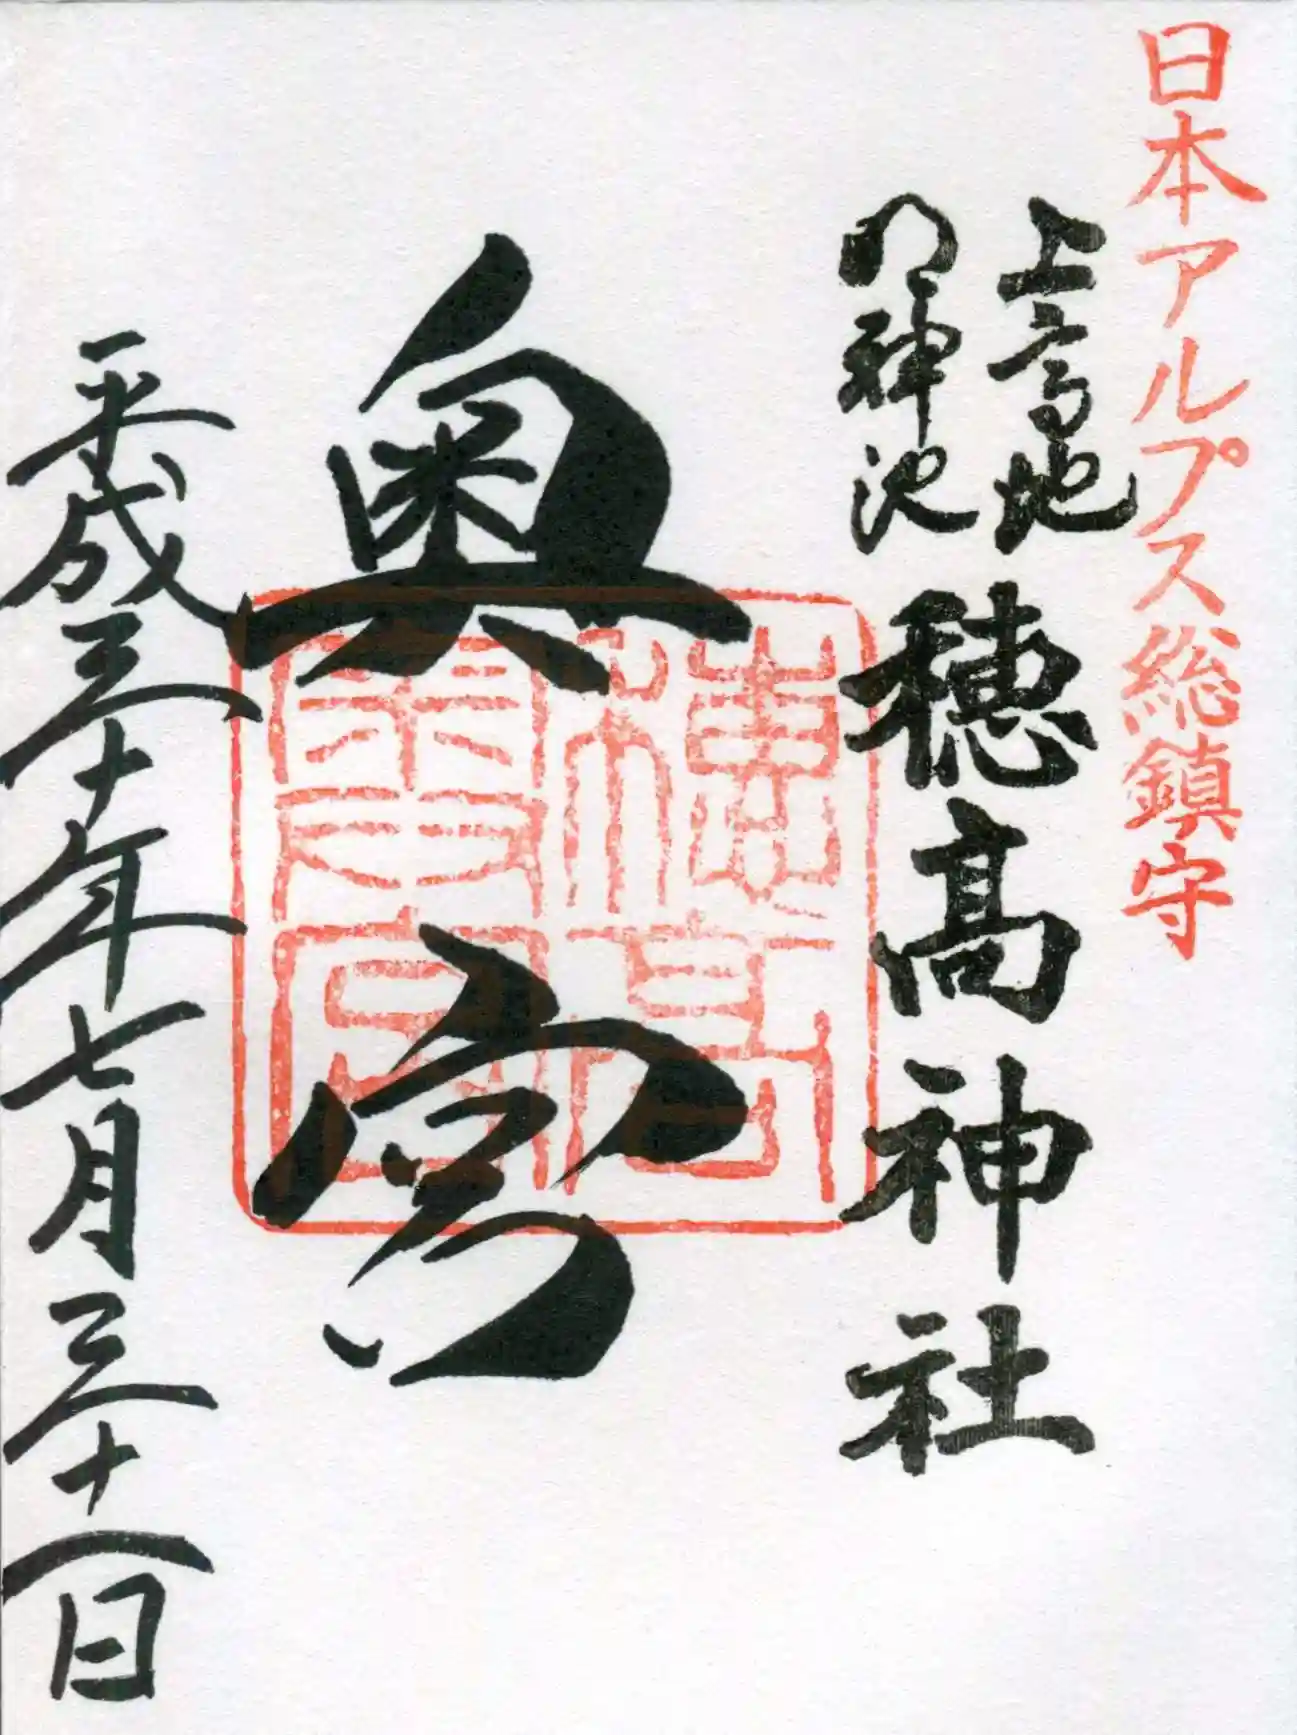 日本アルプス総鎮守
上高地
明神池
穂高神社
奥宮
穂高
奥宮
平成三十年七月三十一日